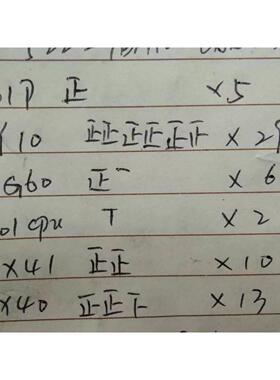 01P 正 ×5
X10 正正正正正正 × 29
G60 正一 × 6
01 cpu T × 2
X41 正正 × 10
X40 正正下 × 13